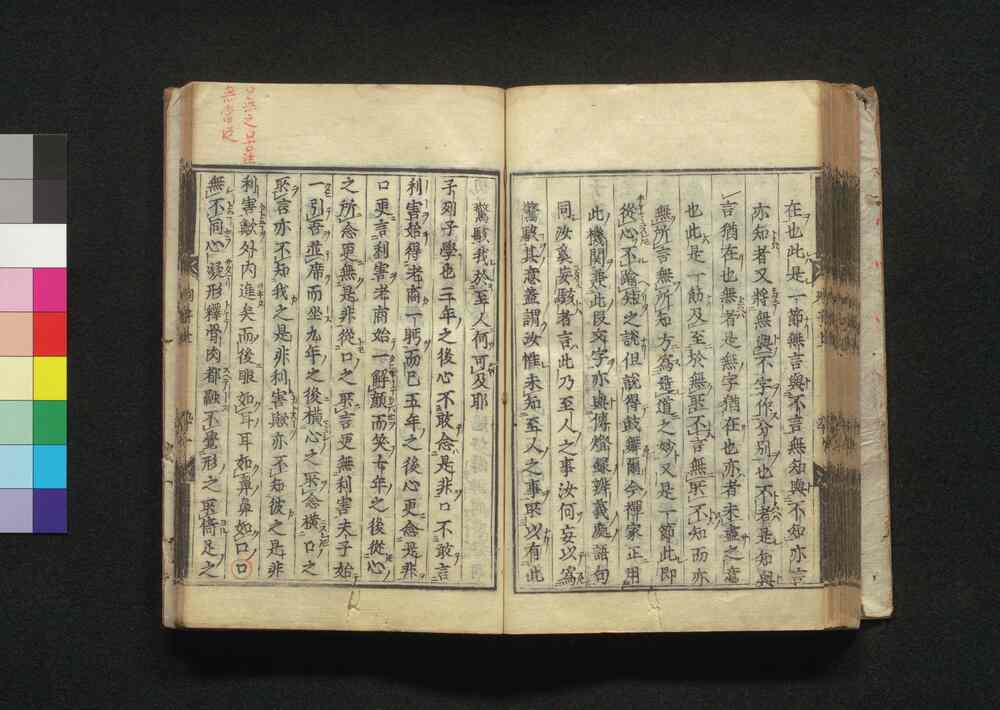 在也此是一節無言與不言無知與不知亦言
亦知者又將無與不字作分別也不者是知與
言猶在也無者是無字猶在也亦者未盡之意
也此是一節及至於無所不言無所不知而亦
無所言無所知方為造道之妙又是一節此即
從心不踰矩之說但說得鼓舞爾今禪家正用
此機關兼此段文字亦與傳燈錄辨義處語句
同汝奚妄駭者言此乃至人之事汝何妄以為
驚駭其意蓋謂汝惟未知至人之事所以有此
驚駭我於至人何可及耶
子列子學也三年之後心不敢念是非口不敢言
利害始得老商一眄而已五年之後心更念是非
口更言利害老商始一解顏而笑七年之後從心
之所念更無是非從口之所言更無利害夫子始
一引吾並席而坐九年之後橫心之所念橫口之
所言亦不知我之是非利害歟亦不知彼之是非
利害歟外內進矣而後眼如耳耳如鼻鼻如口口
無不同心凝形釋骨肉都融不覺形之所倚足之